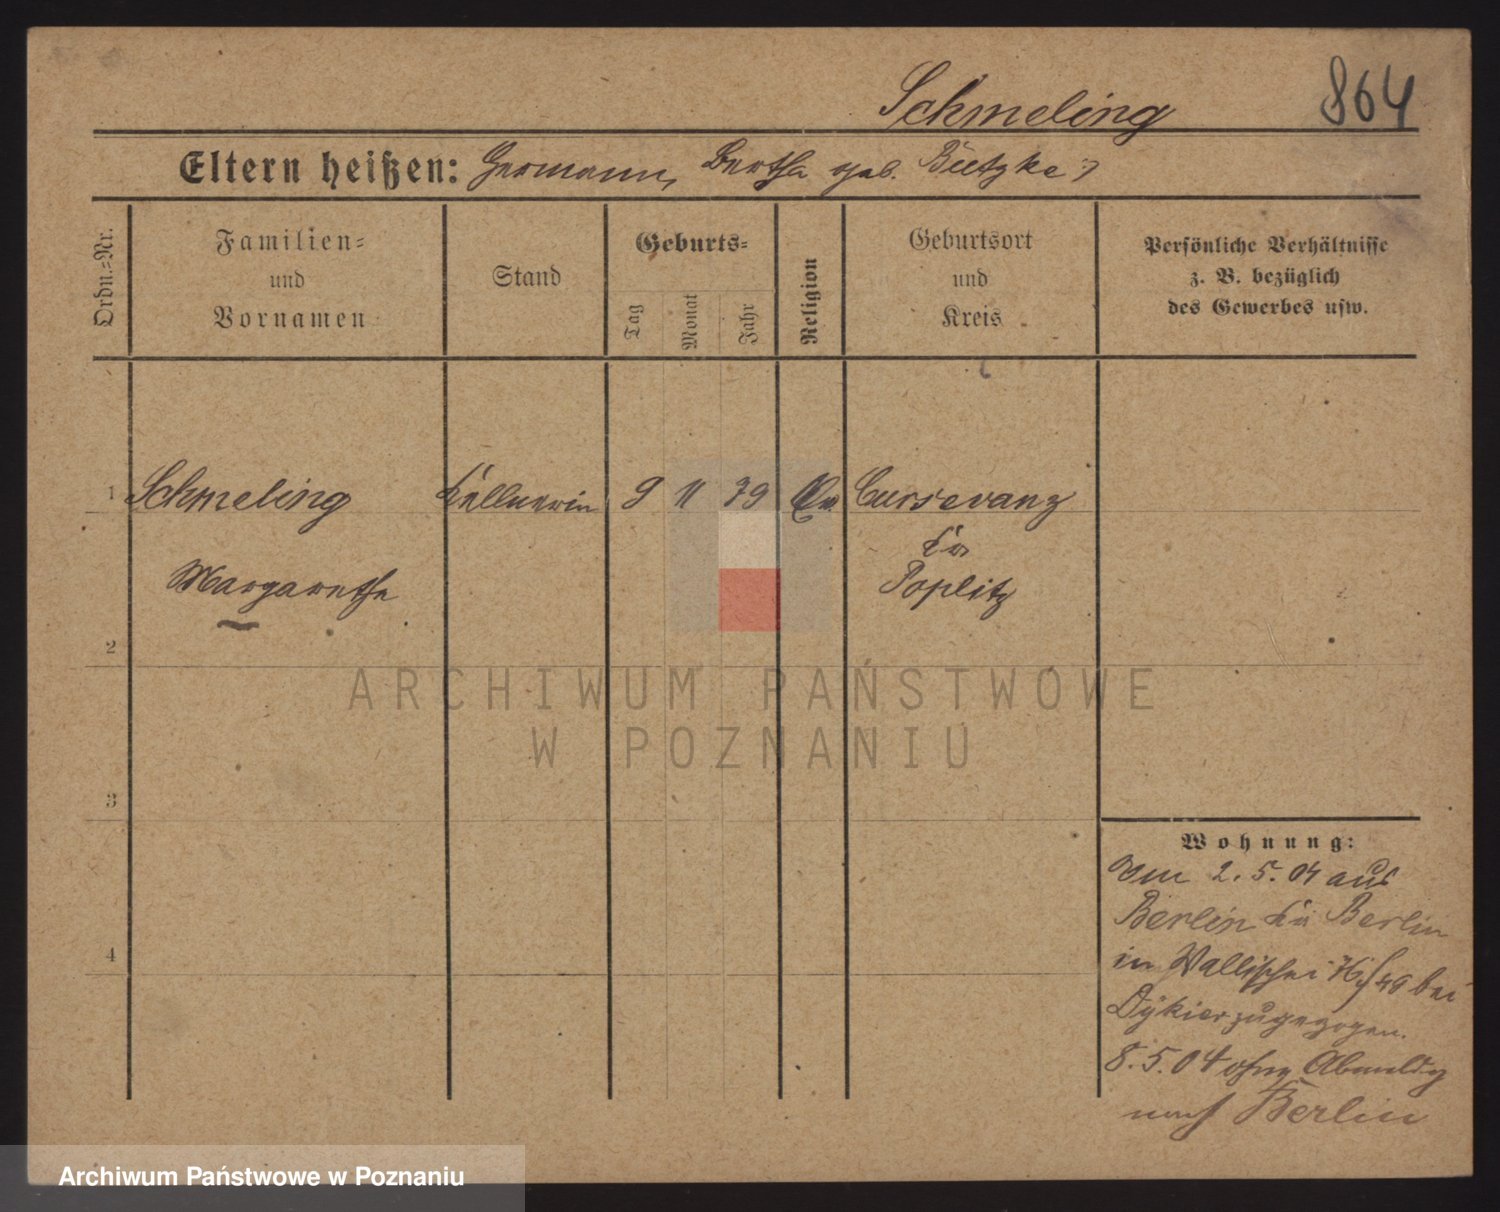 Schmeling
864
Eltern heißen: Hermann, Bertha geb. Büetzke
Ordn.=Nr.
Familien=
und
Vornamen
Stand
Geburts=
Tag
Monat
Jahr
Religion
Geburtsort
und
Kreis
Persönliche Verhältnisse
z. B. bezüglich
des Gewerbes usw.
1 Schmeling Kellnerin 9 11 79 Ev. Cursevanz
Kr
Poplitz
Margarethe
2
ARCHIWUM PAŃSTWOWE
W POZNANIU
3
Wohnung:
Am 2. 5. 04 aus
Berlin Kr Berlin
in Wallischei 76/49 bei
Dykier zugezogen.
8. 5. 04 ohne Abmeldg
nach Berlin
4
Archiwum Państwowe w Poznaniu